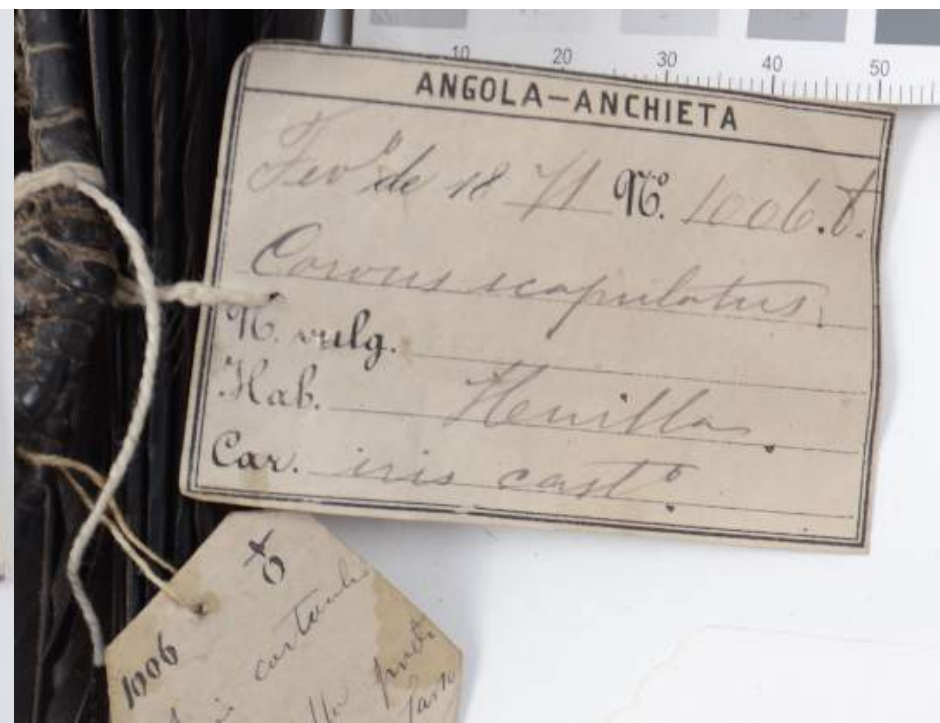 10 20 30 40 50
ANGOLA—ANCHIETA
Fevº de 1871 Nº. 1006.
Corvus scapulatus.
N. vulg.
Hab. Huilla
Car. iris castº
1006
iris castanh